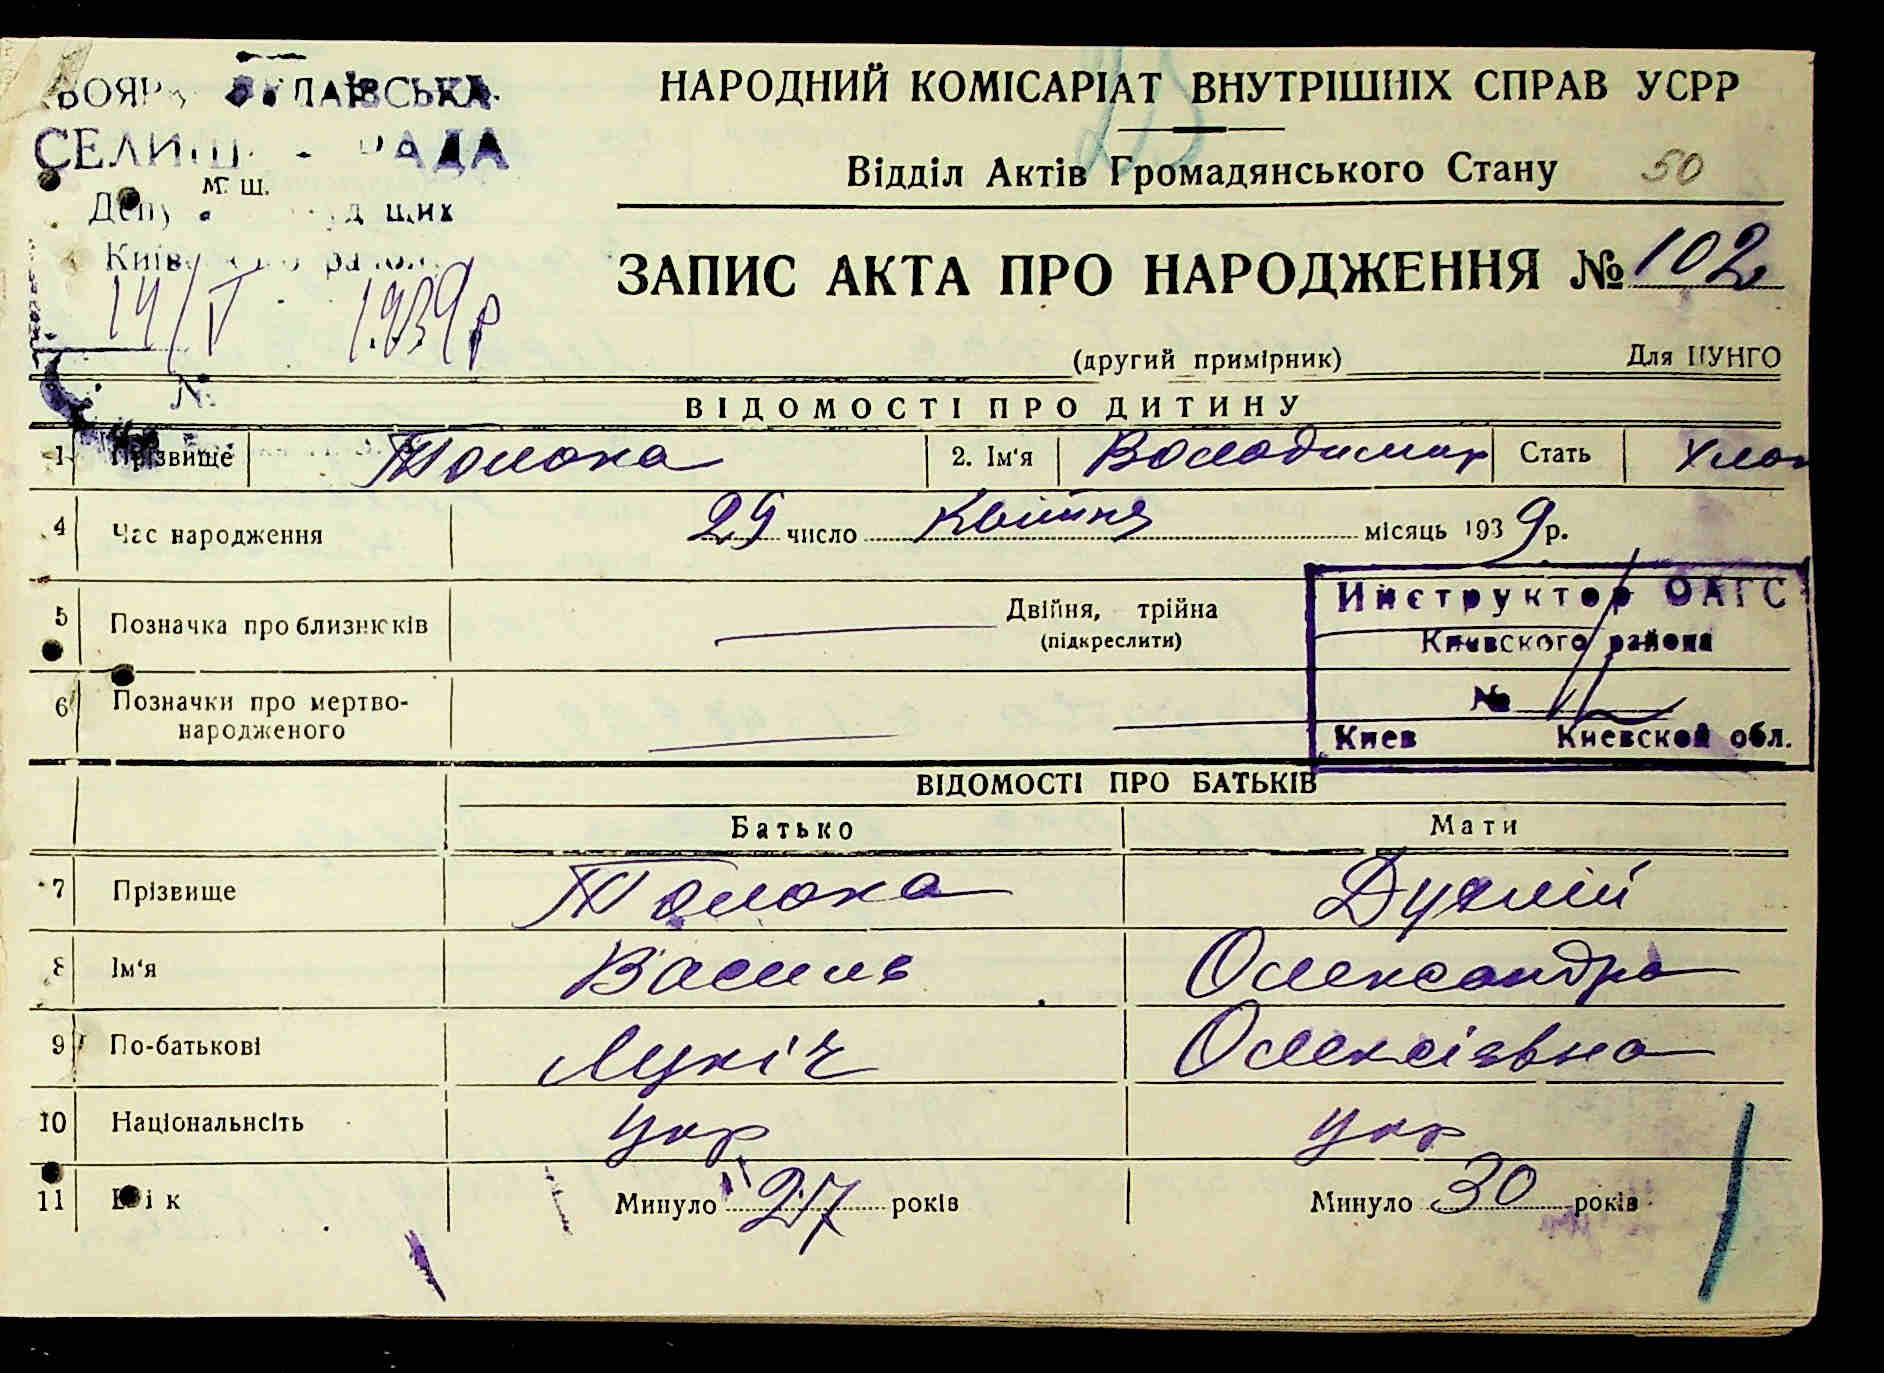 СЕЛИЩ РАДА
м. ш.
14/V 1939 р
№
НАРОДНИЙ КОМІСАРІАТ ВНУТРІШНІХ СПРАВ УСРР
Відділ Актів Громадянського Стану 50
ЗАПИС АКТА ПРО НАРОДЖЕННЯ № 102
(другий примірник) Для ЦУНГО
ВІДОМОСТІ ПРО ДИТИНУ
1 Прізвище Толока 2. Ім'я Володимир Стать Хлоп
4 Час народження 29 число Квітня місяць 1939 р.
5 Позначка про близнюків Двійня, трійна
(підкреслити)
6 Позначки про мертво-
народженого
Инструктор ОАГС
Киевского района
№
Киев Киевской обл.
ВІДОМОСТІ ПРО БАТЬКІВ
Батько Мати
7 Прізвище Толока
8 Ім'я Василь Олександра
9 По-батькові Лукіч Олексіївна
10 Національність укр укр
11 Вік Минуло 27 років Минуло 30 років